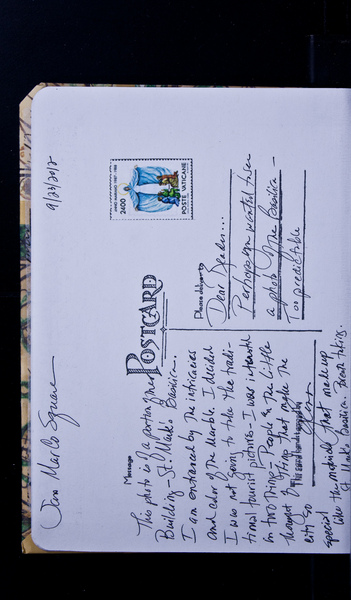 San Marco Square
9/23/2012
POSTCARD
ANNO MARIANO 1987-1988
2400
POSTE VATICANE
Message
This photo is of a portion of
Building - St. Mark's Basilica.
I am entranced by the intricacies
and color of the Marble. I decided
I was not going to take the tradi-
tional tourist pictures - I was interested
in two things - People & the little
things that make the
city so
special
like the materials that make up
St Marks Basilica. Breath taking.
Please deliver to
Dear Reader...
Perhaps you wanted
a photo of the Basilica -
Too predictable